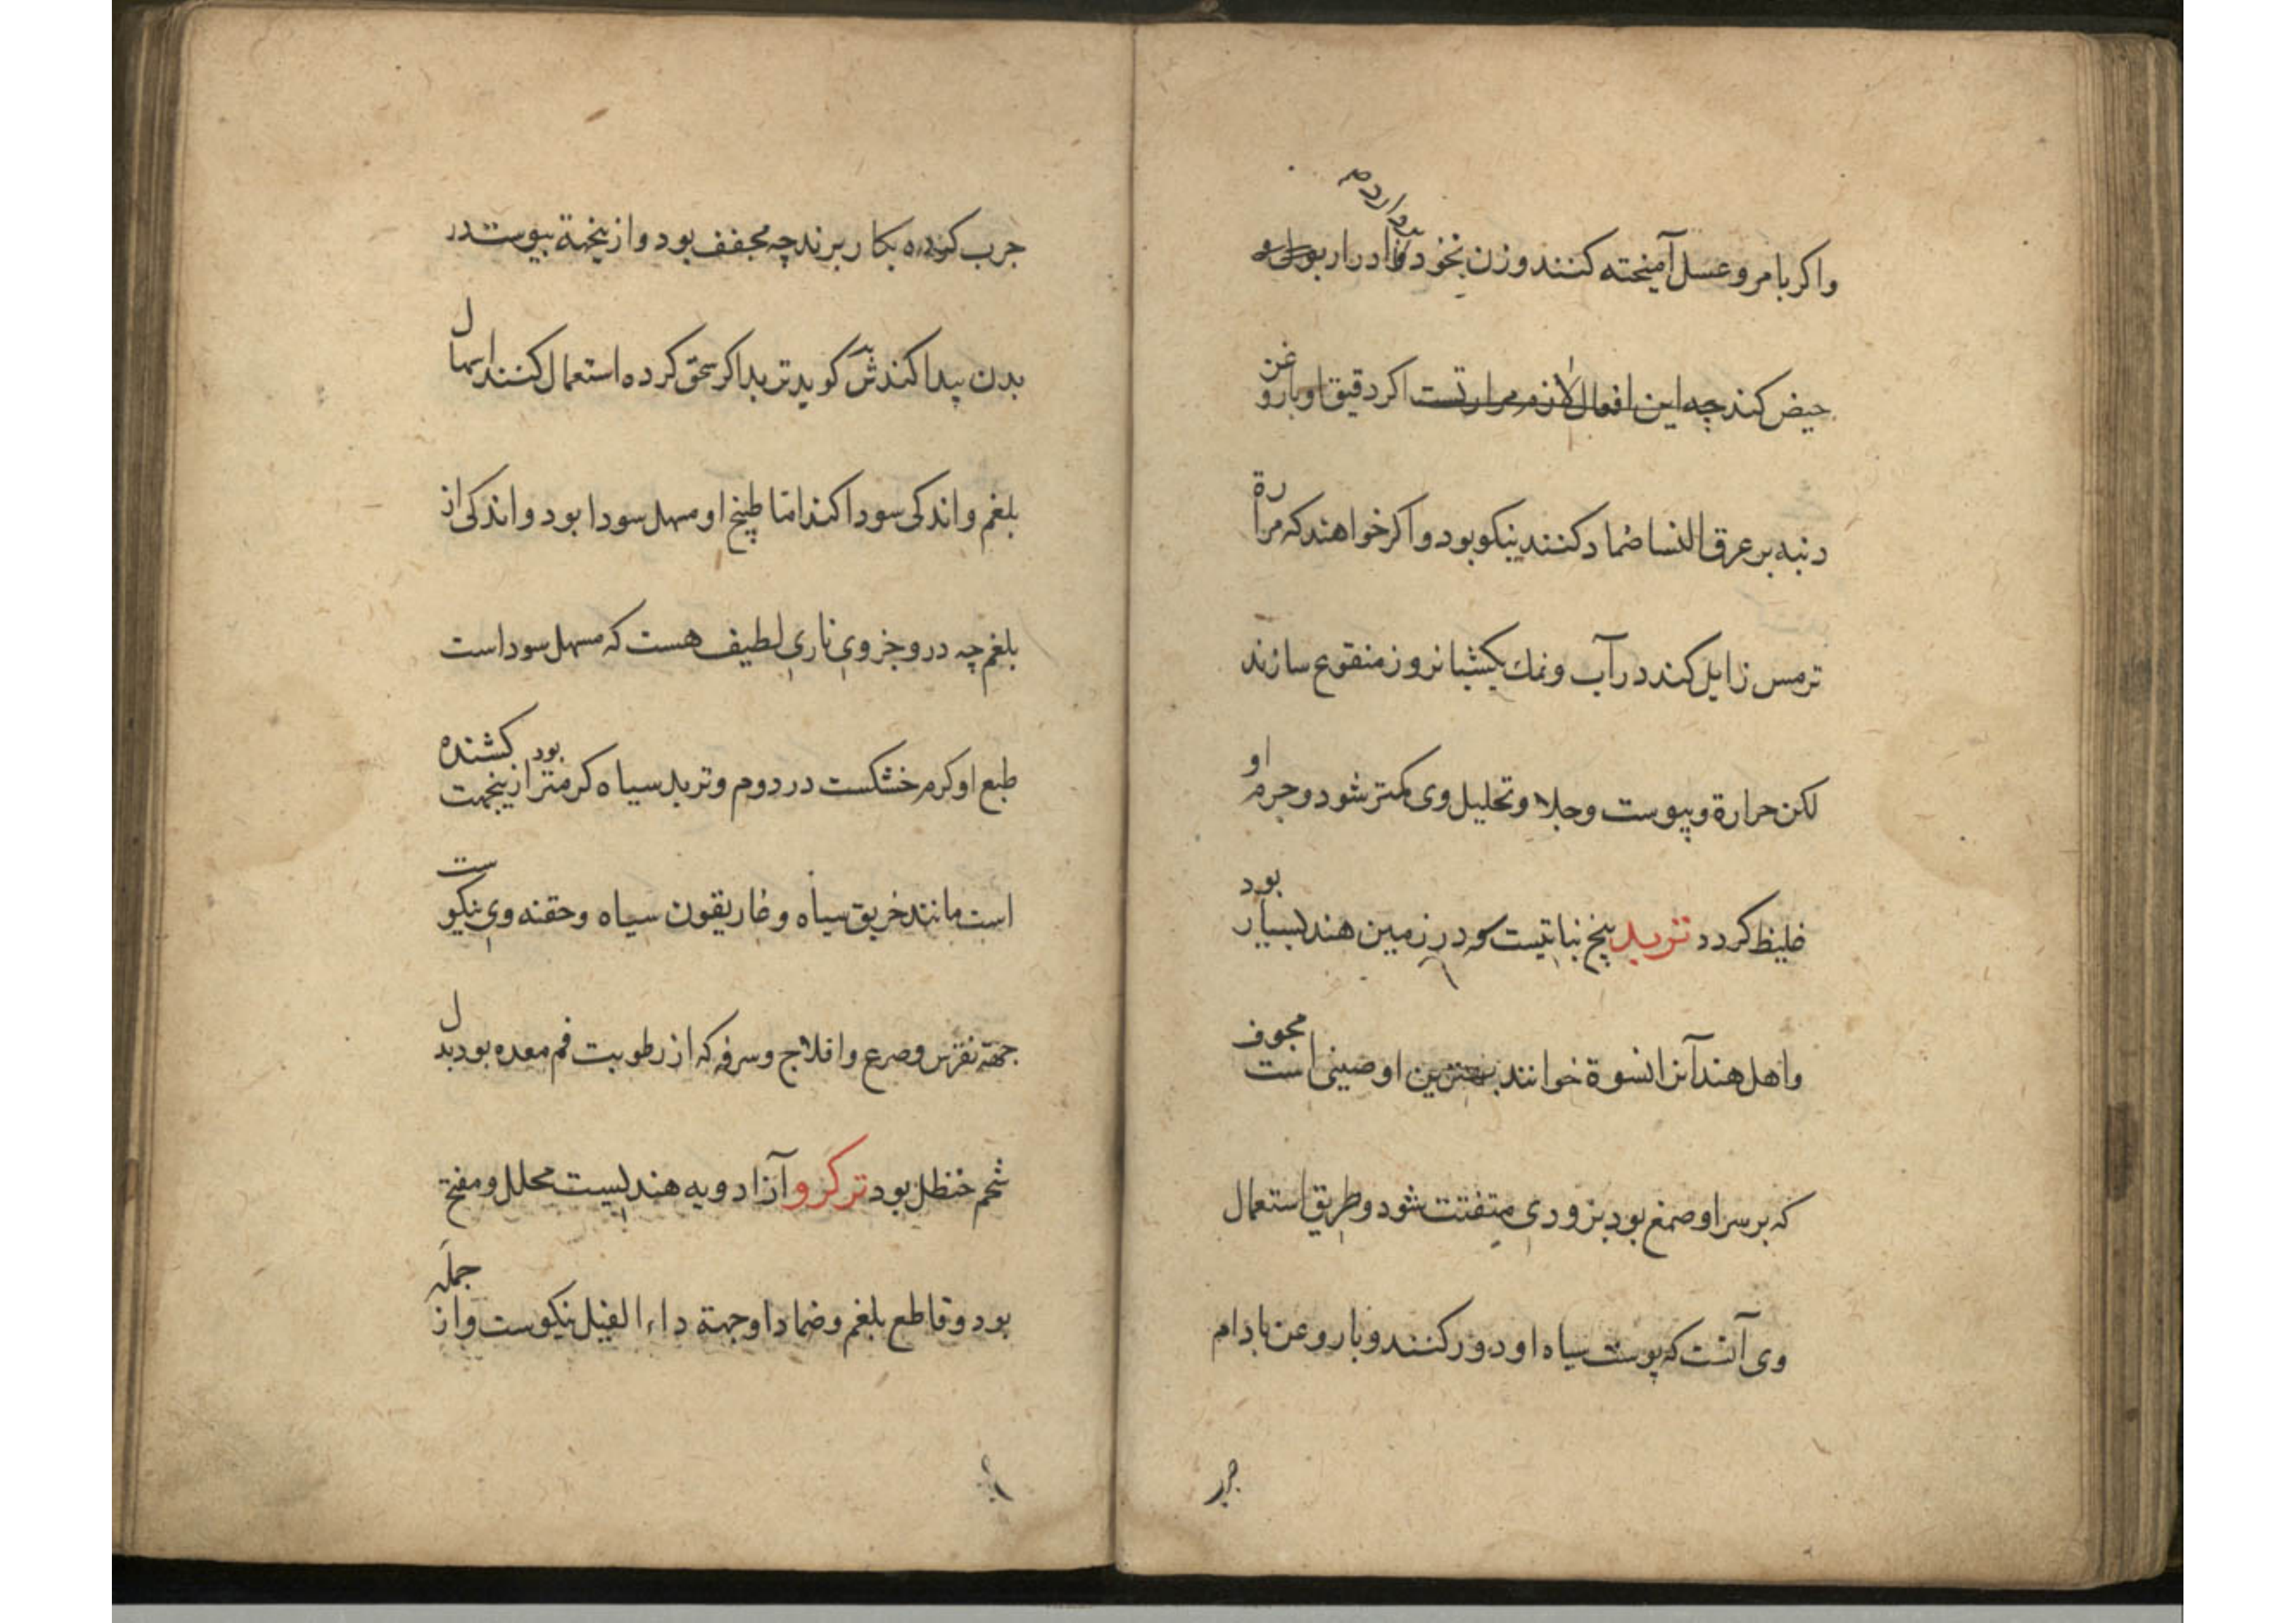 واکر با مر و عسل آمیخته کنند و زن بخود بردارد ادرار بول و
حیض کند چه این افعال لازم مرارتست اکر دقیق او با روغن
دنبه بر عرق النسا ضماد کنند نیکو بود و اکر خواهند که مرارة
ترمس زایل کند در آب و نمك یکشبانروز منقوع سازند
لکن حرارة و یبوست و جلا و تحلیل وی کمتر شود و جرم او
غلیظ کردد تربد بیخ نباتیست که در زمین هند بسیار بود
و اهل هند آنرا نسوة خوانند بهترین او صینی است مجوف
که بر سر او صمغ بود بزودی متفتت شود و طریق استعمال
وی آنست که پوست سیاه او دور کنند و با روغن بادام
جرب کرده بکار برند چه مجفف بود و ازینجهة یبوست در
بدن پیدا کند ش کوید تربد اکر سحق کرده استعمال کنند اسهال
بلغم و اندکی سودا کند اما طبیخ او مسهل سودا بود و اندکی از
بلغم چه درو جزوی ناری لطیف هست که مسهل سوداست
طبع او کرم خشکست در دوم و تربد سیاه کرمتر بود ازینجهت کشنده
است مانند خربق سیاه و غاریقون سیاه و حقنه وی نیکوست
جهة نقرس و صرع و افلاج و سرفه که از رطوبت فم معده بود بدل
شحم حنظل بود ترکرو آن از ادویه هندیست محلل و مفتح
بود و قاطع بلغم و ضماد او جهة داء الفیل نیکوست و از جمله